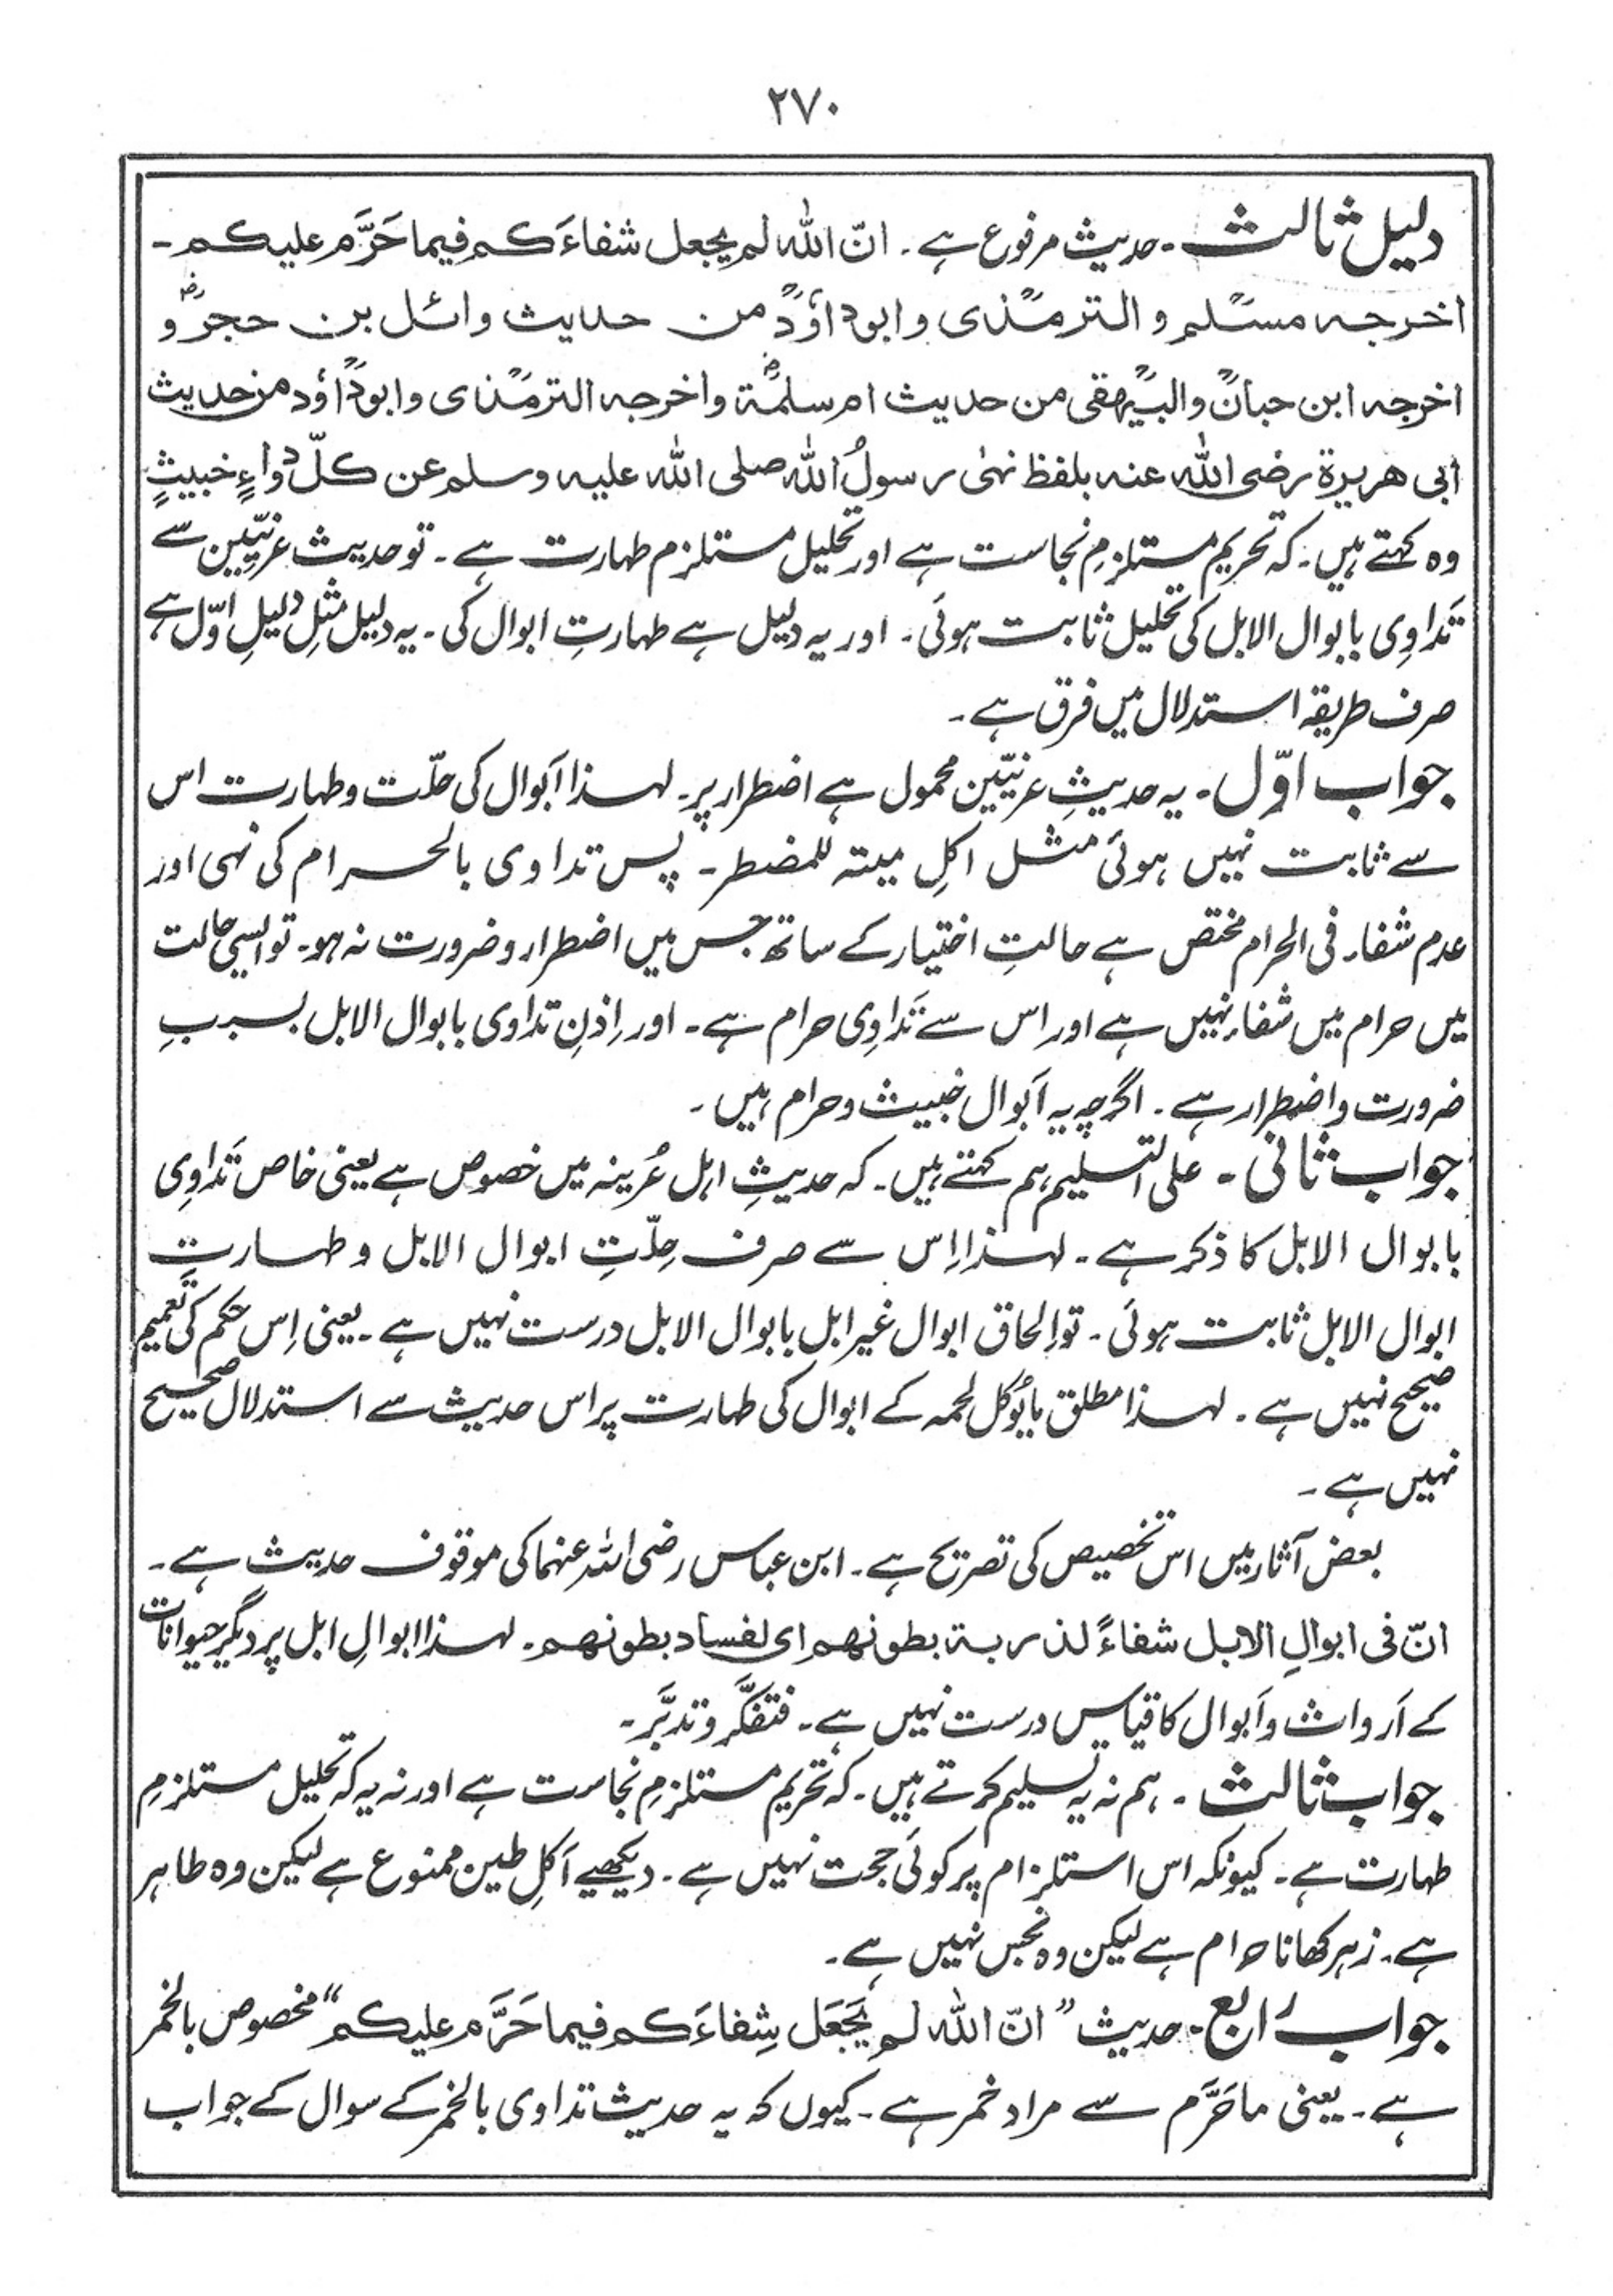 ۲۷۰
دلیل ثالث ۔ حدیث مرفوع ہے ۔ انّ اللہ لم یجعل شفاءَکم فیما حَرَّم علیکم ۔
اخرجہ مسلمؒ و الترمذیؒ و ابوداؤدؒ من حدیث وائل بن حجرؓ و
اخرجہ ابن حبانؒ والبیہقیؒ من حدیث ام سلمۃؓ واخرجہ الترمذیؒ وابوداؤدؒ من حدیث
ابی ھریرۃ رضی اللہ عنہ بلفظ نہیٰ رسولُ اللہ صلی اللہ علیہ وسلم عن کلّ دواءٍ خبیثٍ
وہ کہتے ہیں ۔ کہ تحریم مستلزمِ نجاست ہے اور تحلیل مستلزم طہارت ہے ۔ تو حدیث عرنیّین سے
تَداوِی بابوال الابل کی تحلیل ثابت ہوئی ۔ اور یہ دلیل ہے طہارتِ ابوال کی ۔ یہ دلیل مثلِ دلیلِ اوّل ہے
صرف طریقہ استدلال میں فرق ہے ۔
جواب اوّل ۔ یہ حدیثِ عرنیّین محمول ہے اضطرار پر ۔ لہذا اَبوال کی حلّت و طہارت اس
سے ثابت نہیں ہوئی مثل اکلِ میتہ للمضطر ۔ پس تداوی بالحرام کی نہی اور
عدم شفاء فی الحرام مختص ہے حالتِ اختیار کے ساتھ جس میں اضطرار و ضرورت نہ ہو ۔ تو ایسی حالت
میں حرام میں شفاء نہیں ہے اور اس سے تَداوِی حرام ہے ۔ اور اِذنِ تداوی بابوال الابل بسببِ
ضرورت و اضطرار ہے ۔ اگرچہ یہ اَبوال خبیث و حرام ہیں ۔
جواب ثانی ۔ علی التسلیم ہم کہتے ہیں ۔ کہ حدیثِ اہل عُرینہ میں خصوص ہے یعنی خاص تَداوِی
بابوال الابل کا ذکر ہے ۔ لہذا اِس سے صرف حِلّتِ ابوال الابل و طہارتِ
ابوال الابل ثابت ہوئی ۔ تو اِلحاق ابوال غیر ابل بابوال الابل درست نہیں ہے ۔ یعنی اِس حکم کی تعمیم
صحیح نہیں ہے ۔ لہذا مطلق مایُؤکل لحمہ کے ابوال کی طہارت پر اس حدیث سے استدلال صحیح
نہیں ہے ۔
بعض آثار میں اس تخصیص کی تصریح ہے ۔ ابن عباس رضی اللہ عنہما کی موقوف حدیث ہے ۔
انّ فی ابوالِ الابل شفاءً لذربۃ بطونھم ای لفساد بطونھم ۔ لہذا ابوالِ ابل پر دیگر حیوانات
کے اَرواث و اَبوال کا قیاس درست نہیں ہے ۔ فتفکَّر و تدبَّر ۔
جواب ثالث ۔ ہم نہ یہ تسلیم کرتے ہیں ۔ کہ تحریم مستلزمِ نجاست ہے اور نہ یہ کہ تحلیل مستلزمِ
طہارت ہے ۔ کیونکہ اس استلزام پر کوئی حجت نہیں ہے ۔ دیکھیے اَکلِ طین ممنوع ہے لیکن وہ طاہر
ہے ۔ زہر کھانا حرام ہے لیکن وہ نجس نہیں ہے ۔
جواب رابع ۔ حدیث ”انّ اللہ لم یَجْعَل شِفاءَکم فیما حَرَّم علیکم“ مخصوص بالخمر
ہے ۔ یعنی ماحَرَّم سے مراد خمر ہے ۔ کیوں کہ یہ حدیث تداوی بالخمر کے سوال کے جواب